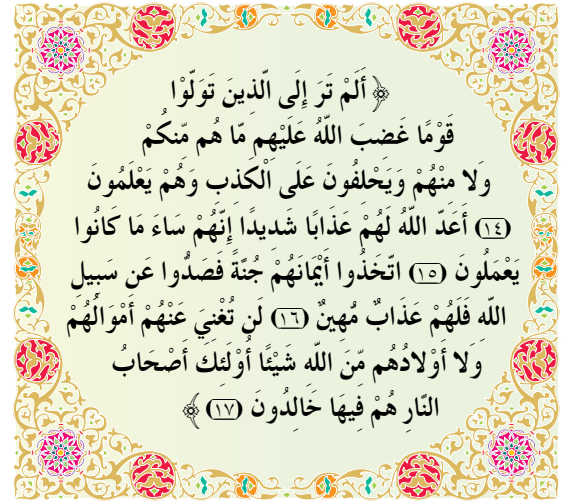 ﴿ أَلَمْ تَرَ إِلَى الَّذِينَ تَوَلَّوْا
قَوْمًا غَضِبَ اللَّهُ عَلَيْهِم مَّا هُم مِّنكُمْ
وَلا مِنْهُمْ وَيَحْلِفُونَ عَلَى الْكَذِبِ وَهُمْ يَعْلَمُونَ
(١٤) أَعَدَّ اللَّهُ لَهُمْ عَذَابًا شَدِيدًا إِنَّهُمْ سَاءَ مَا كَانُوا
يَعْمَلُونَ (١٥) اتَّخَذُوا أَيْمَانَهُمْ جُنَّةً فَصَدُّوا عَن سَبِيلِ
اللَّهِ فَلَهُمْ عَذَابٌ مُّهِينٌ (١٦) لَن تُغْنِيَ عَنْهُمْ أَمْوَالُهُمْ
وَلا أَوْلادُهُم مِّنَ اللَّهِ شَيْئًا أُوْلَئِكَ أَصْحَابُ
النَّارِ هُمْ فِيهَا خَالِدُونَ (١٧) ﴾